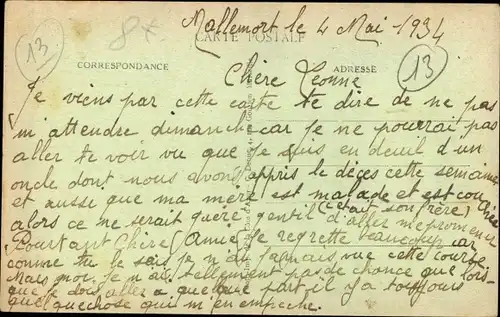 Mallemort le 4 Mai 1934
13
CARTE POSTALE
CORRESPONDANCE
ADRESSE
13
Chère Léonne
Je viens par cette carte te dire de ne pas
m'attendre dimanche car je ne pourrai pas
aller te voir vu que je suis en deuil d'un
oncle dont nous avons appris le décès cette semaine
et aussi que ma mère est malade et est couchée
(c'était son frère)
alors ce ne serait guère gentil d'aller me promener
Pourtant Chère Amie je regrette beaucoup car
comme tu le sais je n'ai jamais vue cette course
Mais moi je n'ai tellement pas de chance que lors-
que je dois aller a quelque part il y a toujours
quelque chose qui m'en empeche.